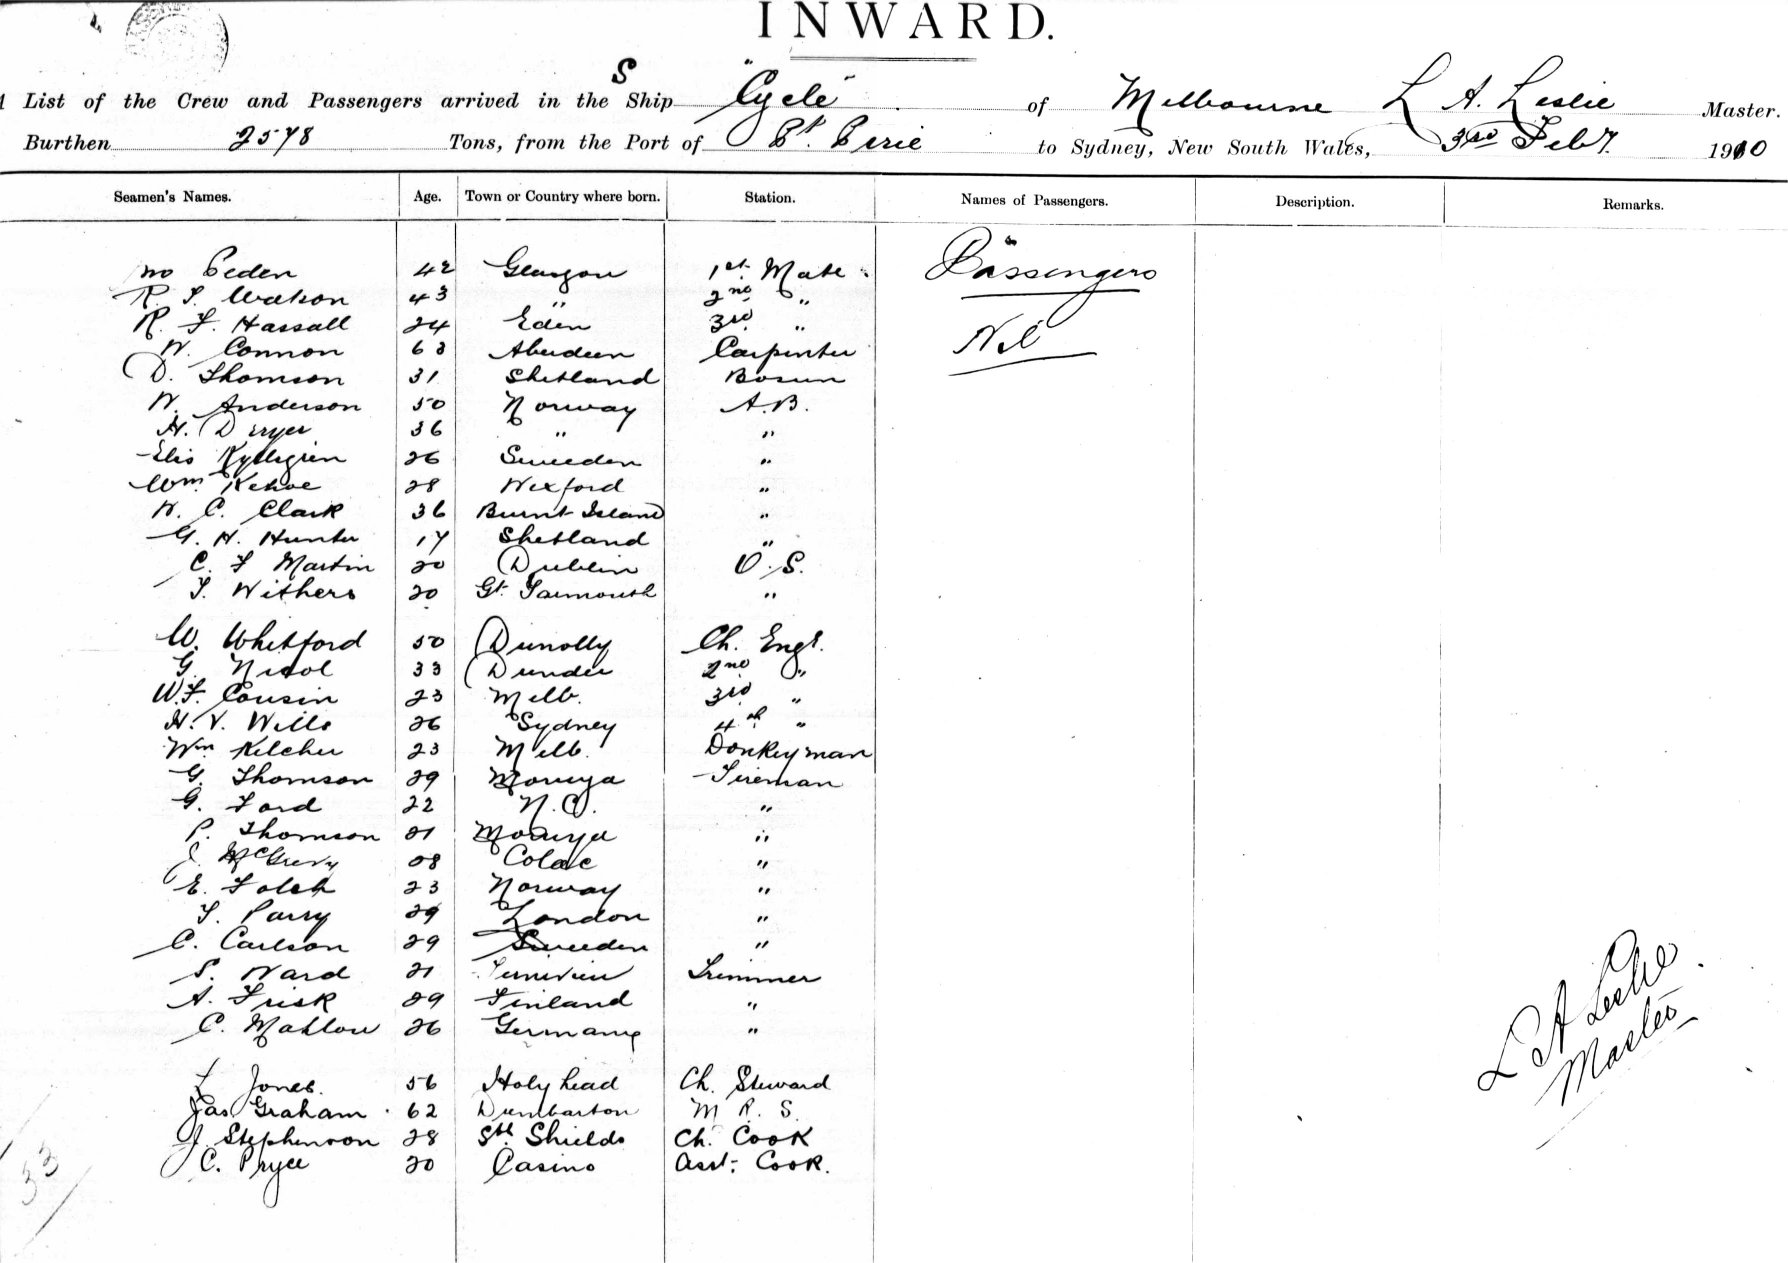 INWARD.
List of the Crew and Passengers arrived in the S Ship "Cycle" of Melbourne L A. Leslie Master.
Burthen 2578 Tons, from the Port of Pt. Pirie to Sydney, New South Wales, 3rd Feby. 1910
Seamen's Names. Age. Town or Country where born. Station. Names of Passengers. Description. Remarks.
Peden 42 Glasgow 1st. Mate Passengers
R. S. Watson 43 " 2nd "
R. F. Hassall 24 Eden 3rd "
W. Connon 63 Aberdeen Carpenter Nil
D. Thomson 31 Shetland Bosun
W. Anderson 50 Norway A.B.
H. Dryer 36 " "
Elis 26 Sweeden "
Wm. Kehoe 28 Wexford "
W. C. Clark 36 Burnt Island "
G. H. Hunter 17 Shetland "
C. F Martin 20 Dublin O.S.
T. Withers 20 Gt. Yarmouth "
W. Whitford 50 Dunolly Ch. Engr.
G. Nicol 33 Dundee 2nd "
W.F. Cousin 23 Melb. 3rd "
H. V. Wills 26 Sydney 4th "
Wm Kelcher 23 Melb. Donkeyman
G. Thomson 29 Moruya Fireman
G. Ford 22 N.C. "
P. Thomson 21 Moruya "
J. McGrevy 28 Colac "
E. Falck 23 Norway "
T. Parry 29 London "
C. Carlson 29 Sweeden "
S. Ward 21 Trimmer
A. Frisk 29 Finland "
C. Mahlow 26 Germany "
L Jones. 56 Holyhead Ch. Steward
Jas Graham 62 Dumbarton M R. S.
J. Stephenson 28 Sth Shields Ch. Cook
C. Pryce 20 Casino Asst. Cook.
L A Leslie
Master
33